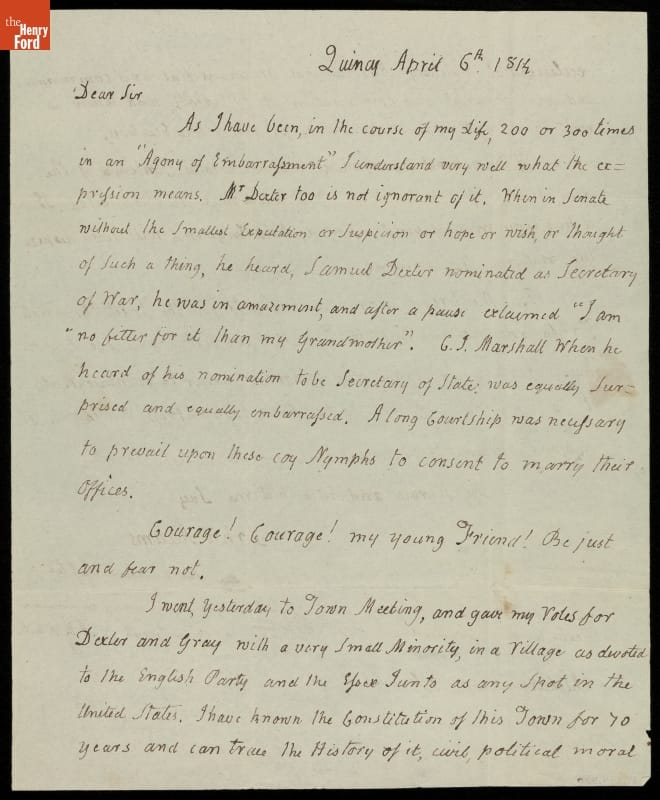 the
Henry
Ford
Quincy April 6th. 1814
Dear Sir
As I have been, in the course of my Life, 200 or 300 times
in an "Agony of Embarrassment" I understand very well what the ex=
pression means. Mr Dexter too is not ignorant of it. When in Senate
without the smallest Expectation or suspicion or hope or wish, or thought
of such a thing, he heard, Samuel Dexter nominated as Secretary
of War, he was in amazement, and after a pause exclaimed "I am
"no fitter for it than my Grandmother". C. J. Marshall When he
heard of his nomination to be Secretary of State, was equally Sur=
prised and equally embarrassed. A long Courtship was necessary
to prevail upon these coy Nymphs to consent to marry their
Offices.
Courage! Courage! my young Friend! Be just
and fear not.
I went, yesterday to Town Meeting, and gave my Votes for
Dexter and Gray with a very small Minority, in a Village as devoted
to the English Party and the Essex Junto as any Spot in the
United States. I have known the Constitution of this Town for 70
years and can trace the History of it, civil, political moral